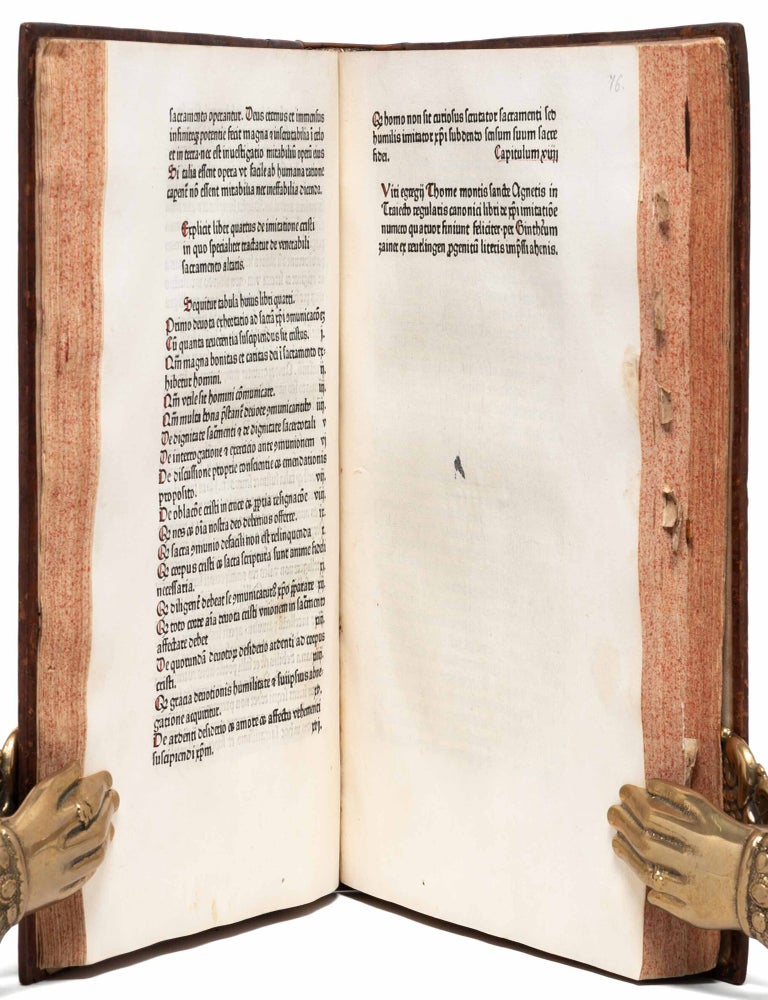 sacramento operantur. Deus eternus et immensus
infiniteq̃ potentie fecit magna ⁊ inscrutabilia ĩ celo
et in terra nec est inuestigatio mirabiliũ operũ eius
Si talia essent opera vt facile ab humana ratione
caperent̃ nõ essent mirabilia nec ineffabilia dicenda.
Explicit liber quartus de imitatione cristi
in quo specialiter tractatur de venerabili
sacramento altaris.
Sequitur tabula huius libri quarti.
Primo deuota exhortatio ad sacrã xp̃i ꝯmunicacõeꝫ
Cũ quanta reuerentia suscipiendus sit cristus. j.
Qm̃ magna bonitas et caritas dei ĩ sacramento ex-
hibetur homini. ij.
Qm̃ vtile sit homini cõmunicare. iij.
Qm̃ multa bona p̃stant̃ deuote ꝯmunicantibꝰ iiij.
De dignitate sacm̃enti ⁊ de dignitate sacerdotali v
De interrogatione ⁊ exercicio ante ꝯmunionem vj
De discussione proprie consciencie ⁊ emendationis
proposito. vij.
De oblacõe cristi in cruce ⁊ ꝓpria resignacõe viij.
Qꝫ nos ⁊ oĩa nostra deo debemus offerre. ix.
Qꝫ sacra ꝯmunio de facili non est relinquenda x.
Qꝫ corpus cristi ⁊ sacra scriptura sunt anime fideli
necessaria. xj.
Qꝫ diligent̃ debeat se ꝯmunicaturꝰ xp̃o p̃parare xij.
Qꝫ toto corde aĩa deuota cristi vnionem in sacm̃ento
affectare debet xiij.
De quorundã deuotoꝝ desiderio ardenti ad corpus
cristi. xiiij.
Qꝫ gracia deuotionis humilitate ⁊ suiipsius abne-
gatione acquiritur. xv.
De ardenti desiderio ⁊ amore ⁊ affectu vehementi
suscipiendi xp̃m. xvj.
76.
Qꝫ homo non sit curiosus scrutator sacramenti sed
humilis imitator xp̃i subdendo sensum suum sacre
fidei. Capitulum xviij
Viri egregij Thome montis sancte Agnetis in
Traiecto regularis canonici libri de xp̃i imitatiõe
numero quatuor finiunt feliciter ꝑ Ginthe᷑um
zainer ex reutlingen ꝓgenitũ literis imp̃ssi ahenis.